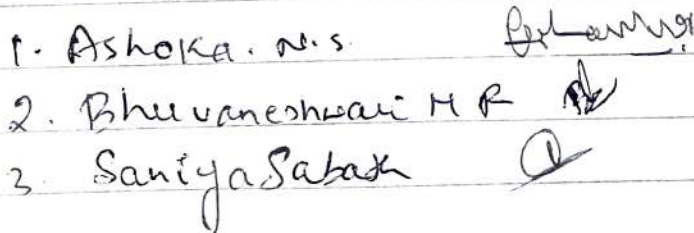 1. Ashoka. N.S.
2. Bhuvaneshwari H R
3. Saniya Sabath